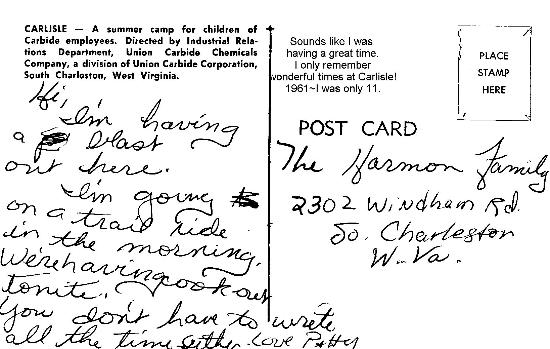 CARLISLE — A summer camp for children of
Carbide employees. Directed by Industrial Rela-
tions Department, Union Carbide Chemicals
Company, a division of Union Carbide Corporation,
South Charleston, West Virginia.
Hi,
I'm having
a blast
out here.
I'm going
on a trail ride
in the morning.
We're having cook out
tonite.
You don't have to write
all the time either. Love Patty
Sounds like I was
having a great time.
I only remember
wonderful times at Carlisle!
1961~I was only 11.
PLACE
STAMP
HERE
POST CARD
The Harmon Family
2302 Windham Rd.
So. Charleston
W. Va.